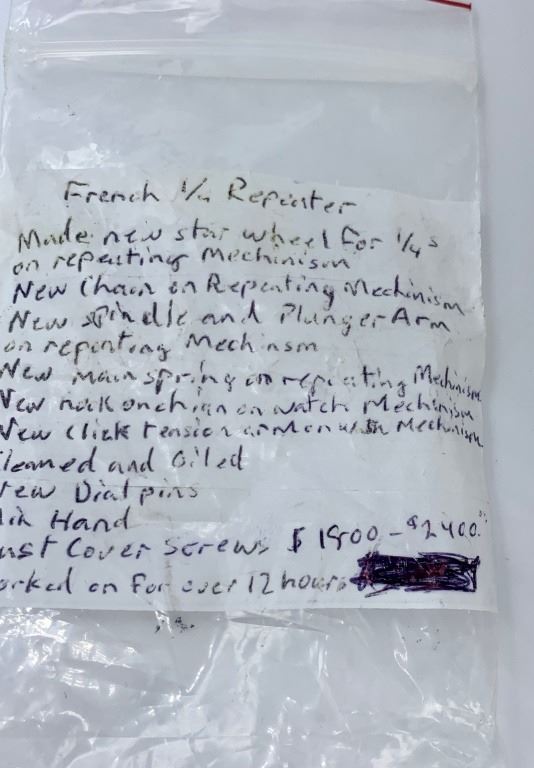 French 1/4 Repeater
Made new star wheel for 1/4s
on repeating Mechinism
New Chain on Repeating Mechinism
New spindle and Plunger Arm
on repenting Mechinsm
New mainspring on repeating Mechinism
New on watch Mechinism
New Click tension arm on Mechinism
leaned and Oiled
New Dial pins
Hand
ust Cover screws $1800 - $2400.00
orked on for over 12 hours